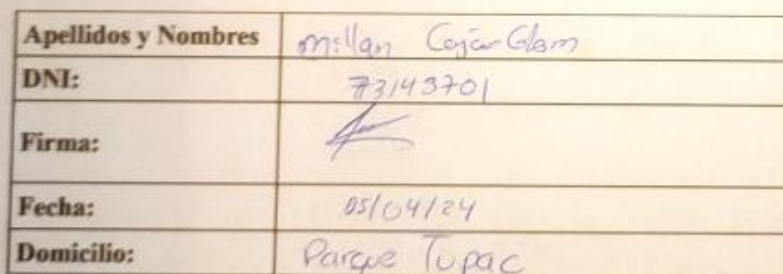 Apellidos y Nombres Millan Cajar Glem
DNI: 73143701
Firma:
Fecha: 05/04/24
Domicilio: Parque Tupac